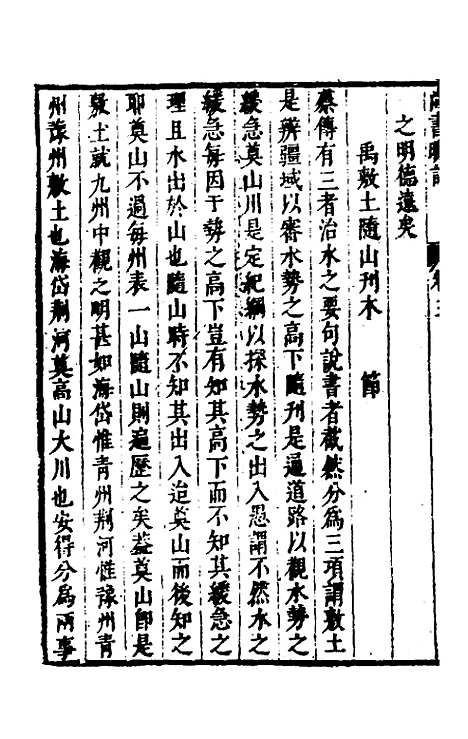 之明德遠矣
禹敷土隨山刋木 節
蔡傳有三者治水之要句說書者截然分為三項謂敷土
是辨疆域以審水勢之高下隨刋是通道路以觀水勢之
緩急奠山川是定紀綱以探水勢之出入愚謂不然水之
緩急每因于勢之高下豈有知其高下而不知其緩急之
理且水出於山也隨山時不知其出入迨奠山而後知之
耶奠山不過每州表一山隨山則遍歷之矣葢奠山卽是
敷土就九州中觀之明甚如海岱惟青州荆河惟豫州青
州豫州敷土也海岱荆河奠高山大川也安得分為兩事